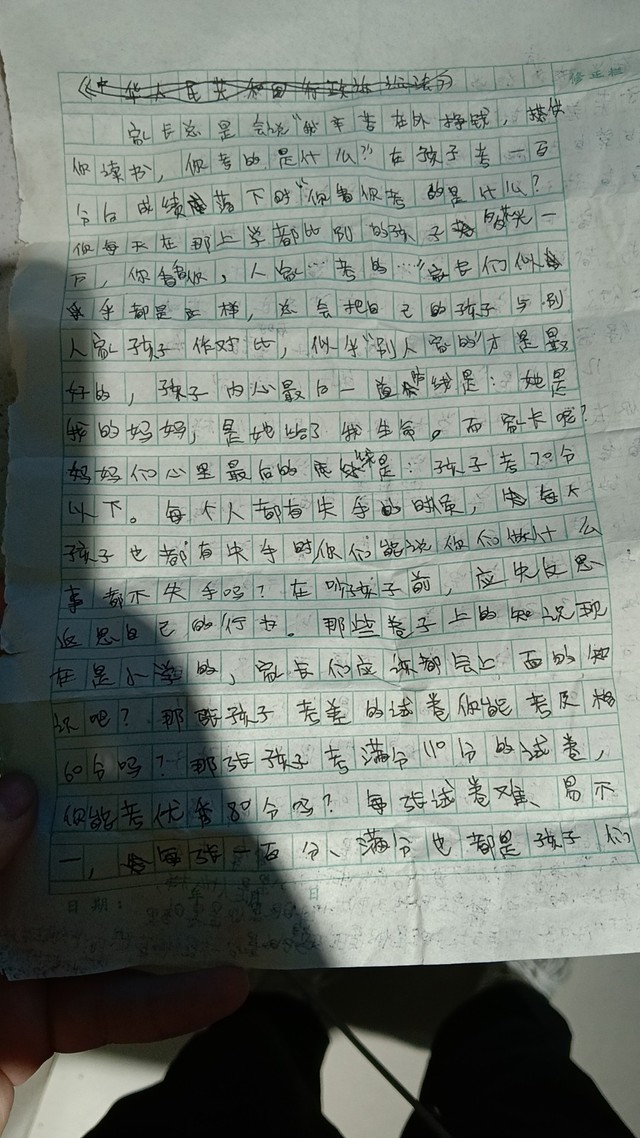 《中华人民共和国行政诉讼法》
修正栏
家长总是会说"我辛苦在外挣钱，供
你读书，你考的是什么？"在孩子考一百
分后成绩落下时"你看你考的是什么？
你每天在那上学都比别的孩子 晚一
下，你看看你，人家…考的…"家长们似
乎都是这样，总会把自己的孩子与别
人家孩子作对比，似乎"别人家的"才是最
好的，孩子内心最后一道防线是：她是
我的妈妈，是她给了我生命。而家长呢？
妈妈们心里最后的底线是：孩子考70分
以下。每个人都有失手的时候，每个
孩子也都有失手时你们能说你们做什么
事都不失手吗？在吵孩子前，应先反思
反思自己的行为。那些卷子上的知识现
在是小学的，家长们应该都会上面的知
识吧？那张孩子考差的试卷你能考及格
60分吗？那张孩子考满分110分的试卷，
你能考优秀80分吗？每张试卷难、易不
一，每张一百分、满分也都是孩子们
日期： 年 月 日